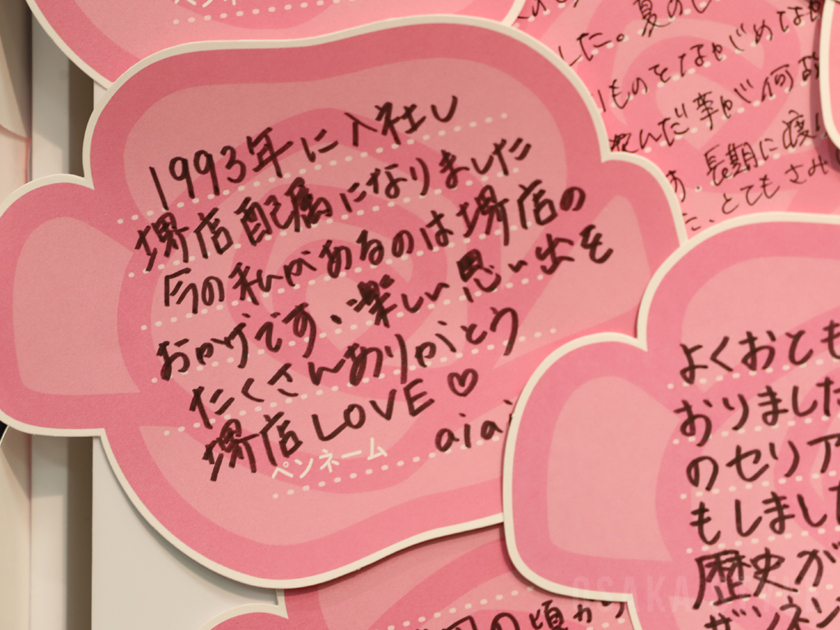 1993年に入社し
堺店配属になりました
今の私があるのは堺店の
おかげです、楽しい思い出を
たくさんありがとう
堺店LOVE♡
ペンネーム aiai
した。夏の
ものをながめてなが
んだ事が何
長期に渡り
た、とてもさみ
よくおとも
おりました
のセリア
もしまし
歴史が
ザンネン
の頃から
OSAKA